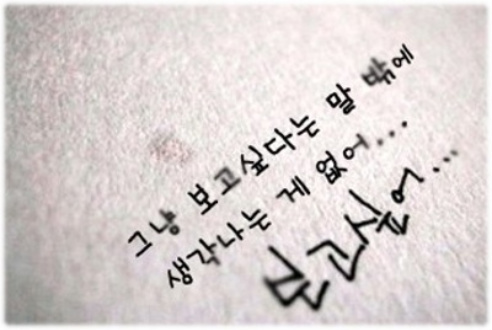 그냥 보고싶다는 말 밖에
생각나는 게 없어...
보고싶어...